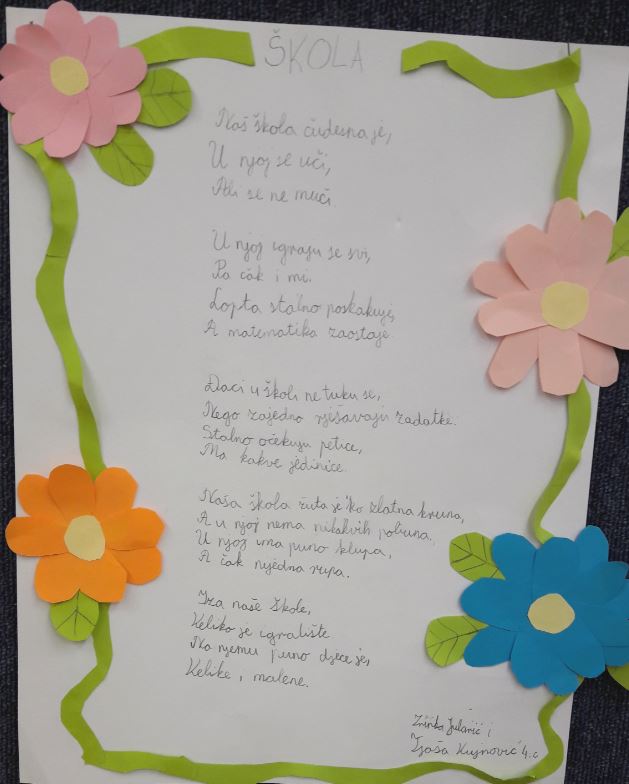 ŠKOLA
Naš škola čudesna je,
U njoj se uči,
Ali se ne muči.
U njoj igraju se svi,
Pa čak i mi.
Lopta stalno poskakuje,
A matematika zaostaje.
Đaci u školi ne tuku se,
Nego zajedno rješavaju zadatke.
Stalno očekuju petice,
Ma kakve jedinice.
Naša škola žuta je 'ko zlatna kruna,
A u njoj nema nikakvih pobuna.
U njoj ima puno klupa,
A čak nijedna rupa.
Iza naše škole,
Veliko je igralište
Na njemu puno djece je,
Velike i malene.
i
Kujnović 4.c